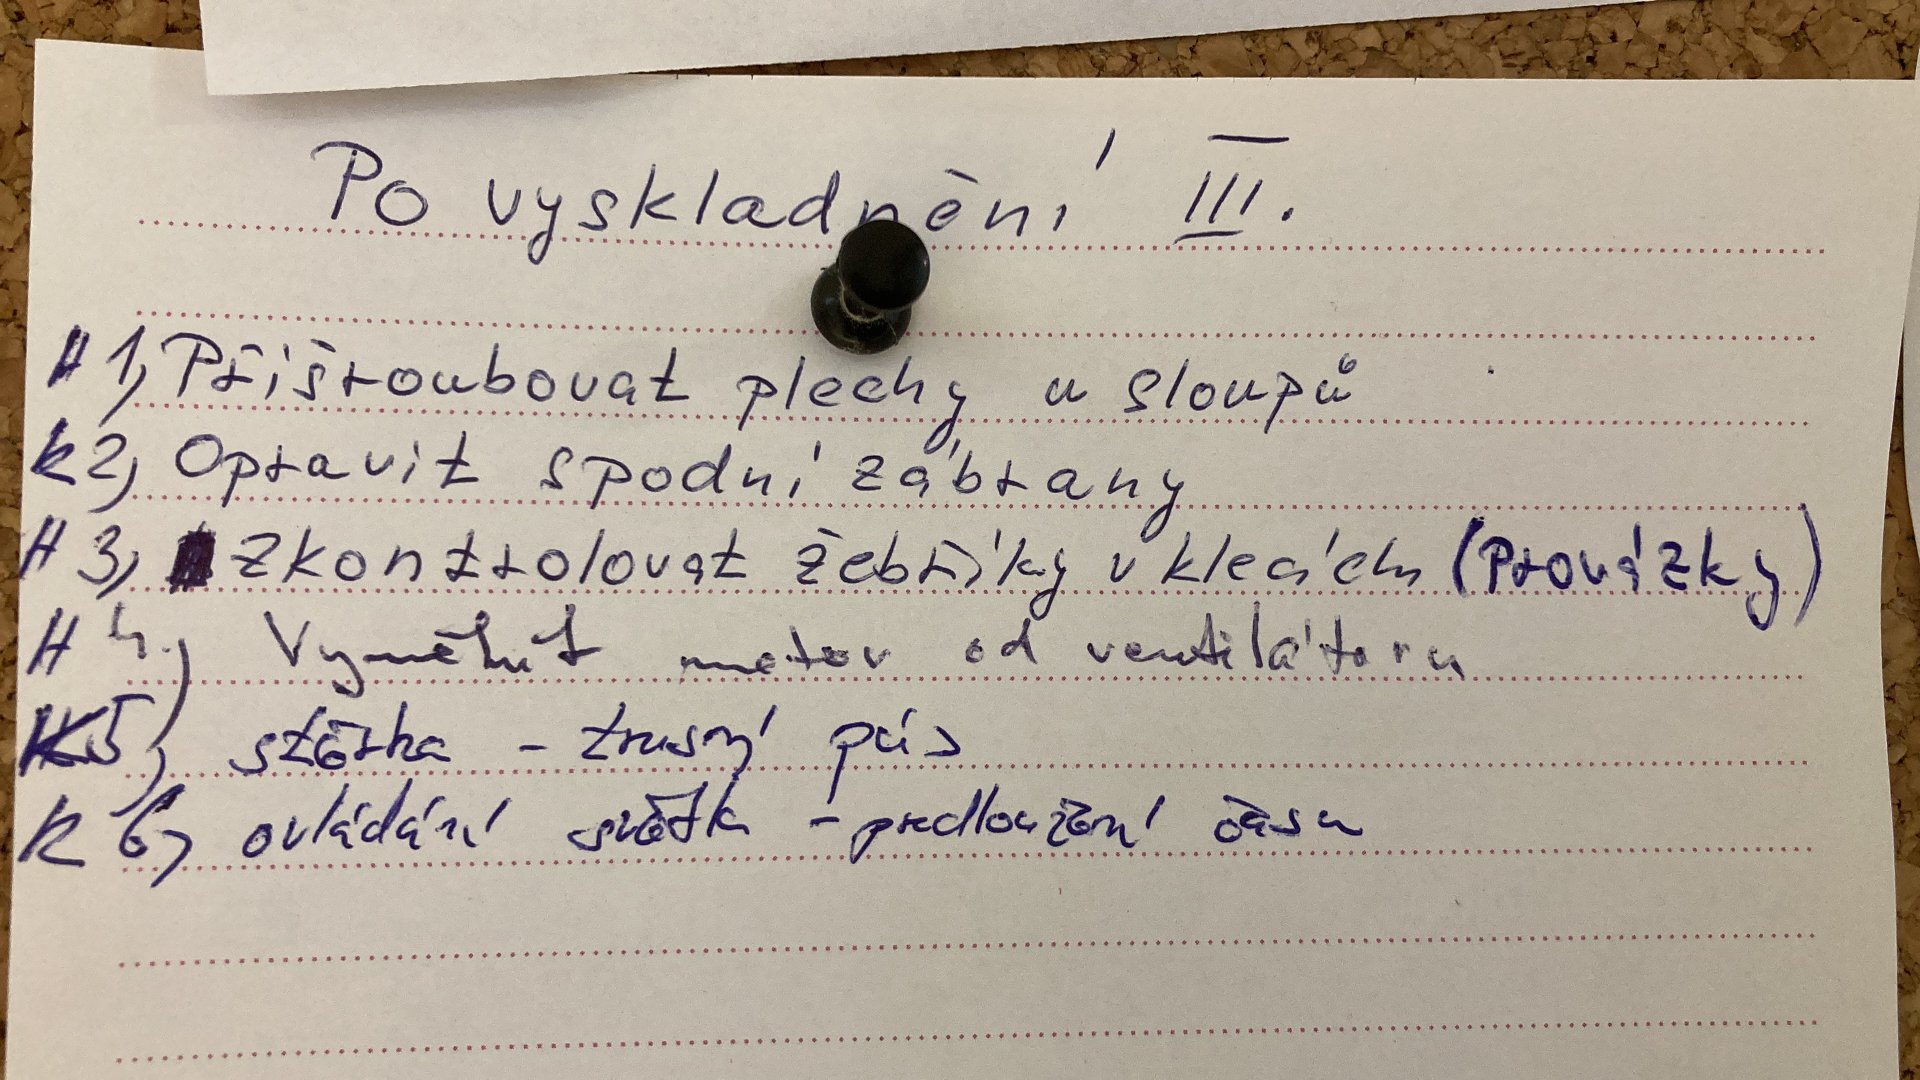 Po vyskladnění III.
H 1, Přišroubovat plechy u sloupů
K 2, Opravit spodní zábrany
H 3, zkontrolovat žebříky v klecích (Provázky)
H 4.) Vyměnit motor od ventilátoru
5, stěrka - trusný pás
K 6, ovládání světla - predloužení času